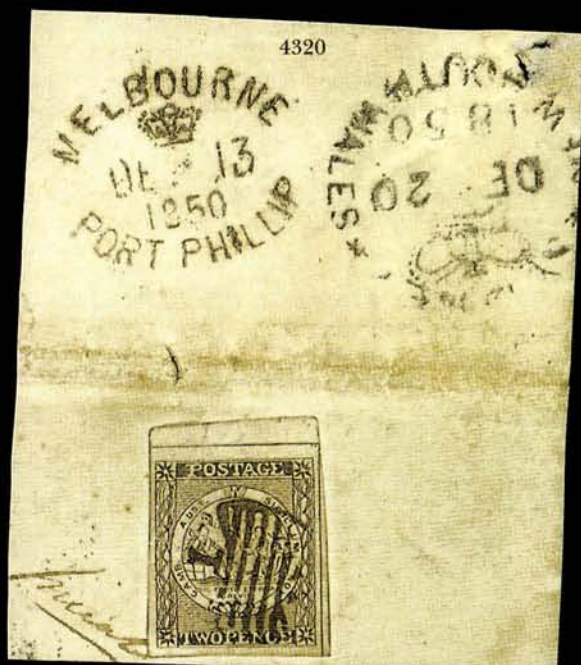 4320
MELBOURNE
DE 13
1850
PORT PHILLIP
SOUTH WALES *
1850
DE 20
POSTAGE
CAMB AUST SIGILLUM
TWO PENCE